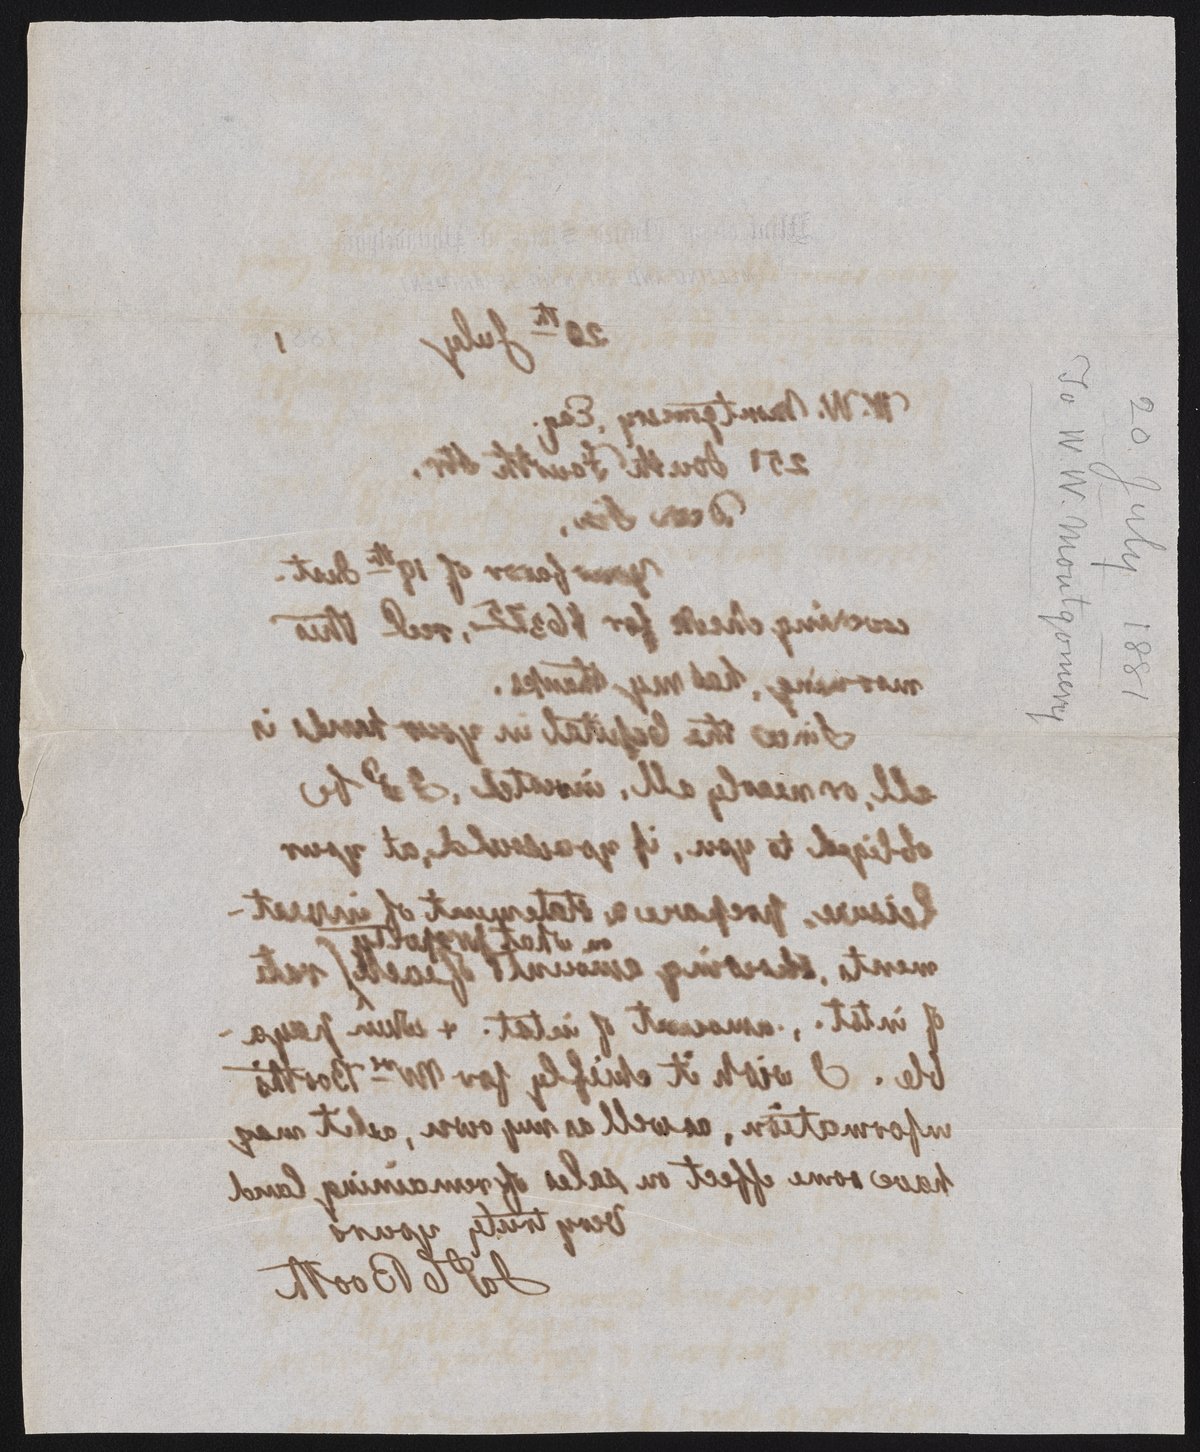 Mint of the United States at Philadelphia
20th July 1881
W. W. Montgomery, Esq.
251 South Fourth Str.
Dear Sir,
Your favor of 19th Inst.
covering check for recd this
morning, has my thanks.
Since the Capital in your hands is
all, or nearly all, invested, I'd be
obliged to you, if you would, at your
leisure, prepare a statement of invest-
on what property
ments, showing amounts of each / rate
of intst., amount of intst. & when paya-
ble. I wish it chiefly for Mrs Booth's
information, as well as my own, as it may
have some effect on sales of remaining land
Very truly yours
Jas C Booth
20 July 1881
To W W. Montgomery